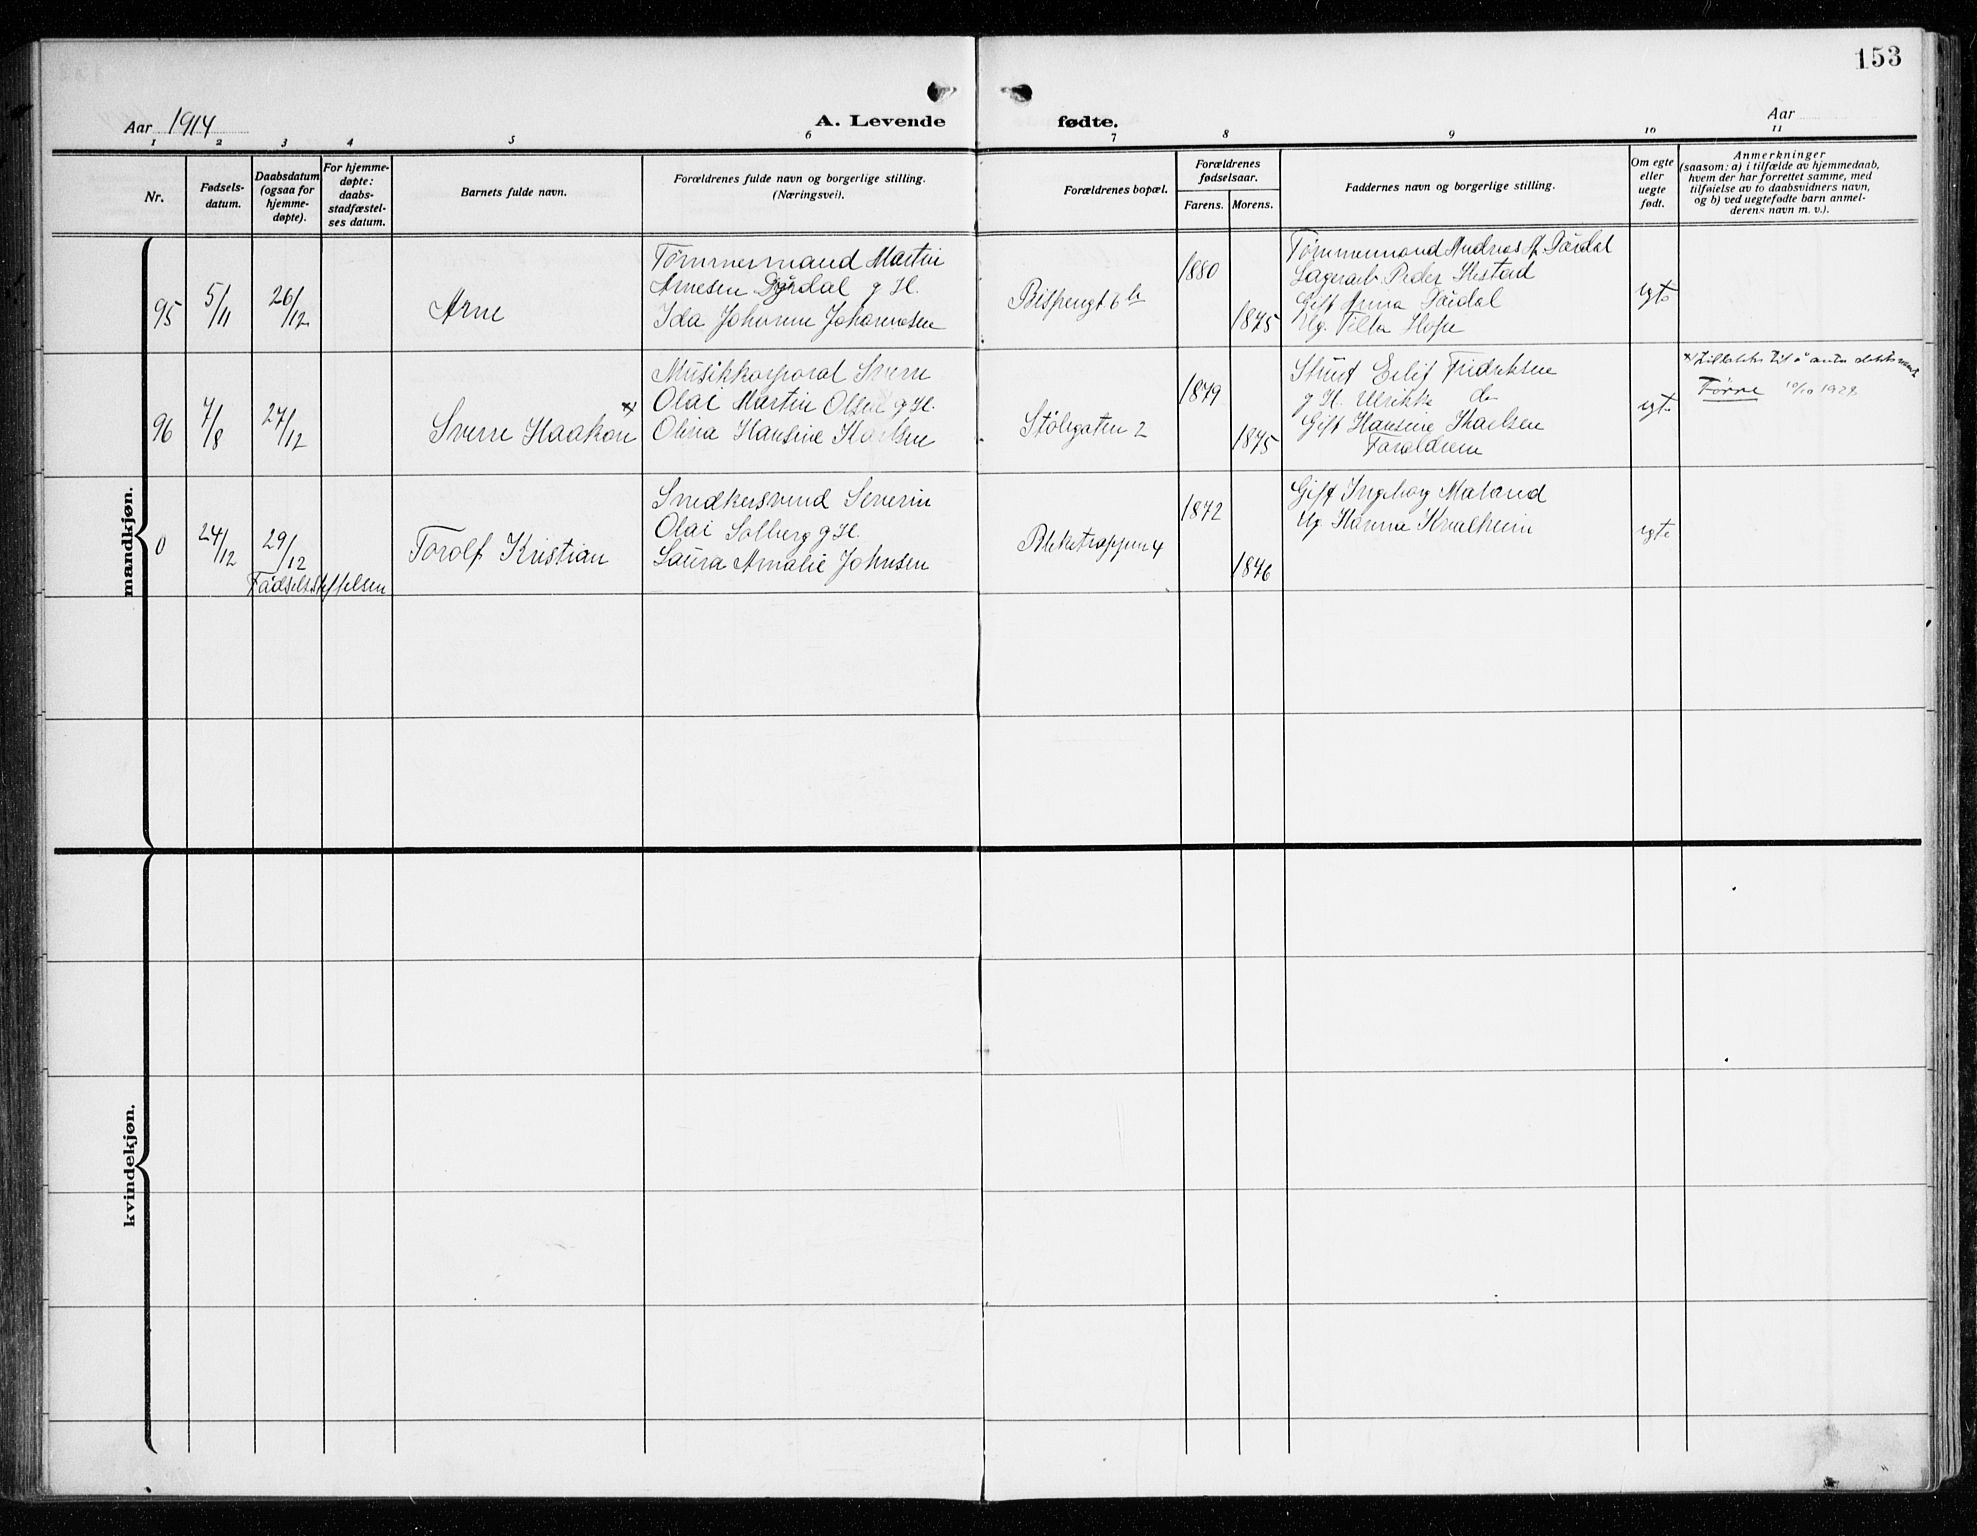 153
Aar 1914
A. Levende fødte.
Aar
1 2 3 4 5 6 7 8 9 10 11
Nr.
Fødsels-
datum.
Daabsdatum
(ogsaa for
hjemme-
døpte).
For hjemme-
døpte:
daabs-
stadfæstel-
ses datum.
Barnets fulde navn.
Forældrenes fulde navn og borgerlige stilling.
(Næringsvei).
Forældrenes bopæl.
Forældrenes
fødselsaar.
Farens. Morens.
Faddernes navn og borgerlige stilling.
Om egte
eller
uegte
født.
Anmerkninger
(saasom: a) i tilfælde av hjemmedaab,
hvem der har forrettet samme, med
tilføielse av to daabsvidners navn,
og b) ved uegtefødte barn anmel-
derens navn m. v.).
mandkjøn.
95
5/11
26/12
Arne
Tømmermand Martin
Arnesen Dyrdal g H.
Ida Johanne Johannesen
Bispengt 6 b
1880
1875
Tømmermand Andreas A
Lagerarb Peder Hestad
Gift Anna
Ug.
egte
96
7/8
27/12
Sverre Haakon x
Musikkorporal Sverre
Olai Martin Olsen g H.
Olina Hansine Karlsen
Stölegaten 2
1879
1875
Eilif Fredriksen
g H. Ulrikke do
Gift Hansine Karlsen
Forældrene
egte
x/ til å anta
Førre 10/10
0
24/12
29/12
Fødselsstiftelsen
Torolf Kristian
Snedkersvend Severin
Olai Solberg g H.
Laura Amalie Johnsen
Bleketrappen 4
1872
1876
Gift Ingeborg Maland
Ug. Hanna
egte
kvindekjøn.